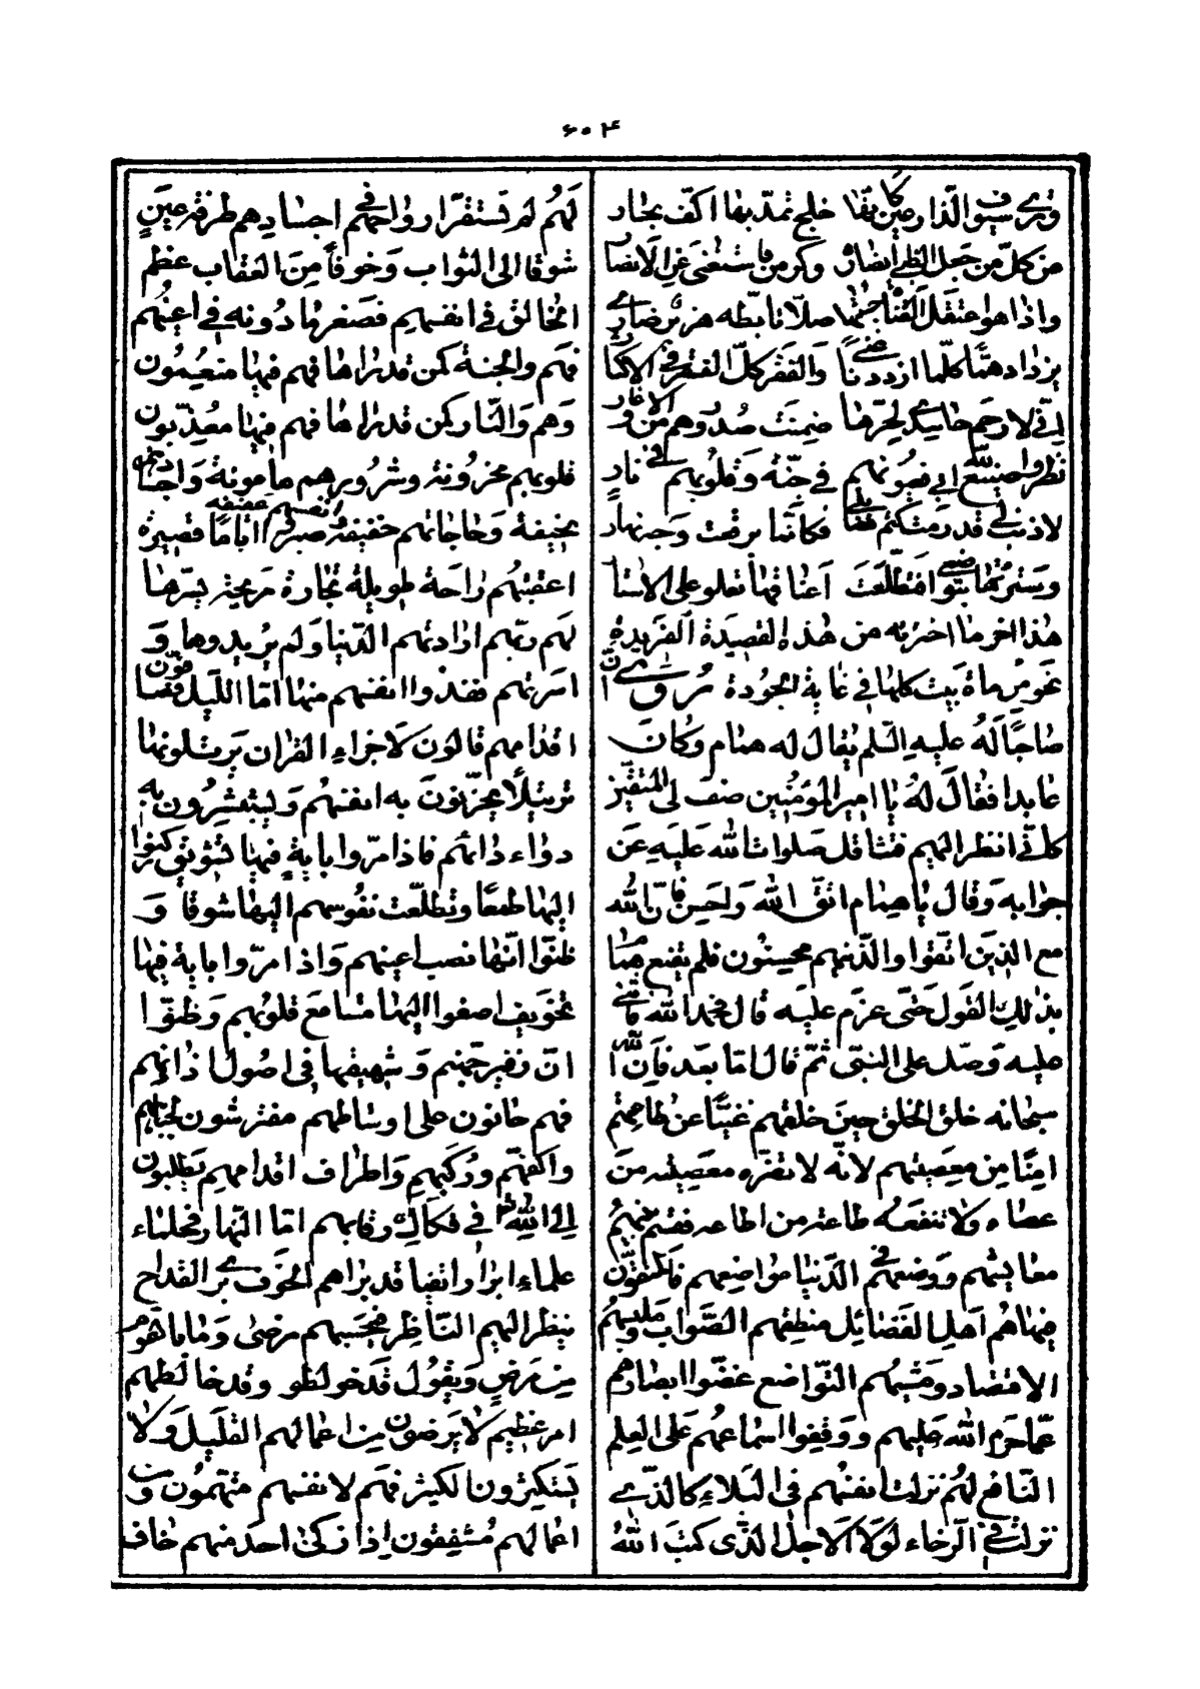 ۶۰۴
خلج تمدّ بها اكفّ بحار
من كلّ من جعل الظبي انصاره وكرمن فاستغنى عن الانصار
واذا هو اعتقل القناة حسبتها صلّا تابّطه هزبر ضاري
يزداد همّا كلّما ازددنا غنى والفقر كلّ الفقر في الاكثار
إنّي لارحم حاسديّ لحرّما ضمنت صدورهم من الاوغار
نظروا صنيع الله بي فعيونهم في جنّة وقلوبهم في نار
لا ذنب لي قد رمت كتم فضائلي فكانّما برقعت وجه نهار
وسترتها بتواضعي فتطلّعت اعناقها تعلو على الاستار
هذا اخر ما اخترته من هذه القصيدة الفريدة
نحو من مأة بيت كلها في غاية الجودة روى انّ
صاحبًا له عليه السّلم يقال له همام وكان
عابدا فقال له يا امير المؤمنين صف لى المتقين
كانّي انظر اليهم فتثاقل صلوات الله عليه عن
جوابه وقال يا همام اتّق الله واحسن فانّ الله
مع الذين اتقوا والذينهم محسنون فلم يقنع همام
بذلك القول حتى عزم عليه قال فحمد الله واثنى
عليه وصلى على النبى ثمّ قال امّا بعد فانّ الله
سبحانه خلق الخلق حين خلقهم غنيّا عن طاعتهم
امنًا من معصيتهم لانّه لا تضرّه معصيته من
عصاه ولا تنفعه طاعة من اطاعه فقسم بينهم
معايشهم ووضعهم في الدّنيا مواضعهم فالمتّقون
فيها هم اهل الفضائل منطقهم الصّواب وملبسهم
الاقتصاد ومشيهم التّواضع غضّوا ابصارهم
عمّا حرّم الله عليهم ووقفوا اسماعهم على العلم
النّافع لهم نزلت انفسهم فى البلاء كالذي
نزلت في الرخاء لولا الاجل الذى كتب الله
لهم لم تستقرّ ارواحهم في اجسادهم طرفة عين
شوقا الى الثواب وخوفًا من العقاب عظم
الخالق في انفسهم فصغر ما دونه في اعينهم
فهم والجنة كمن قد راها فهم فيها متنعّمون
وهم والنّار كمن قد راها فهم فيها معذّبون
قلوبهم محزونة وشرورهم مامونة واجسادهم
نحيفة وحاجاتهم خفيفة انفسهم عفيفه صبروا اياما قصيرة
اعقبتهم راحة طويلة تجارة مربحة يسّرها
لهم ربّهم ارادتهم الدّنيا ولم يريدوها و
اسرتهم ففدوا انفسهم منها امّا اللّيل فصافّون
اقدامهم تالون لاجزاء القران يرتلونها
ترتيلًا يحزّنون به انفسهم ويستثيرون به
دواء دائهم فاذا مرّوا باية فيها تشويق ركنوا
اليها طمعًا وتطلّعت نفوسهم اليها شوقا و
ظنّوا انّها نصب اعينهم واذا مرّوا باية فيها
تخويف اصغوا اليها مسامع قلوبهم وظنّوا
انّ زفير جهنم وشهيقها فى اصول اذانهم
فهم حانون على اوساطهم مفترشون لجباههم
واكفّهم وركبهم واطراف اقدامهم يطلبون
الى الله في فكاك رقابهم امّا النّهار فحلماء
علماء ابرار اتقيا قد براهم الخوف برى القداح
ينظر اليهم النّاظر فيحسبهم مرضى وما بالقوم
من مرض ويقول قد خولطو وقد خالطهم
امر عظيم لا يرضون من اعمالهم القليل ولا
يستكثرون الكثير فهم لانفسهم متّهمون ومن
اعمالهم مشفقون اذا زكى احد منهم خاف